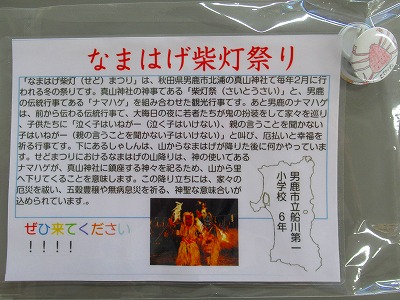 なまはげ柴灯祭り
「なまはげ柴灯（せど）まつり」は、秋田県男鹿市北浦の真山神社で毎年2月に行
われる冬の祭りです。真山神社の神事である「柴灯祭（さいとうさい）」と、男鹿
の伝統行事である「ナマハゲ」を組み合わせた観光行事です。あと男鹿のナマハゲ
は、前から伝わる伝統行事で、大晦日の夜に若者たちが鬼の扮装をして家々を巡
り、子供たちに「泣く子はいねがー（泣く子はいけない）、親の言うことを聞かない
子はいねがー（親の言うことを聞かない子はいけない）」と叫び、厄払いと幸福を
祈る行事です。下にあるしゃしんは、山からなまはげが降りた後に何かやっていま
す。せどまつりにおけるなまはげの山降りは、神の使いである
ナマハゲが、真山神社に鎮座する神々を祀るため、山から里
へ下りてくることを意味します。この降り立ちには、家々の
厄災を祓い、五穀豊穣や無病息災を祈る、神聖な意味合いが
込められています。。
ぜひ来てください
！！！！
男鹿市立船川第一
小学校　6年